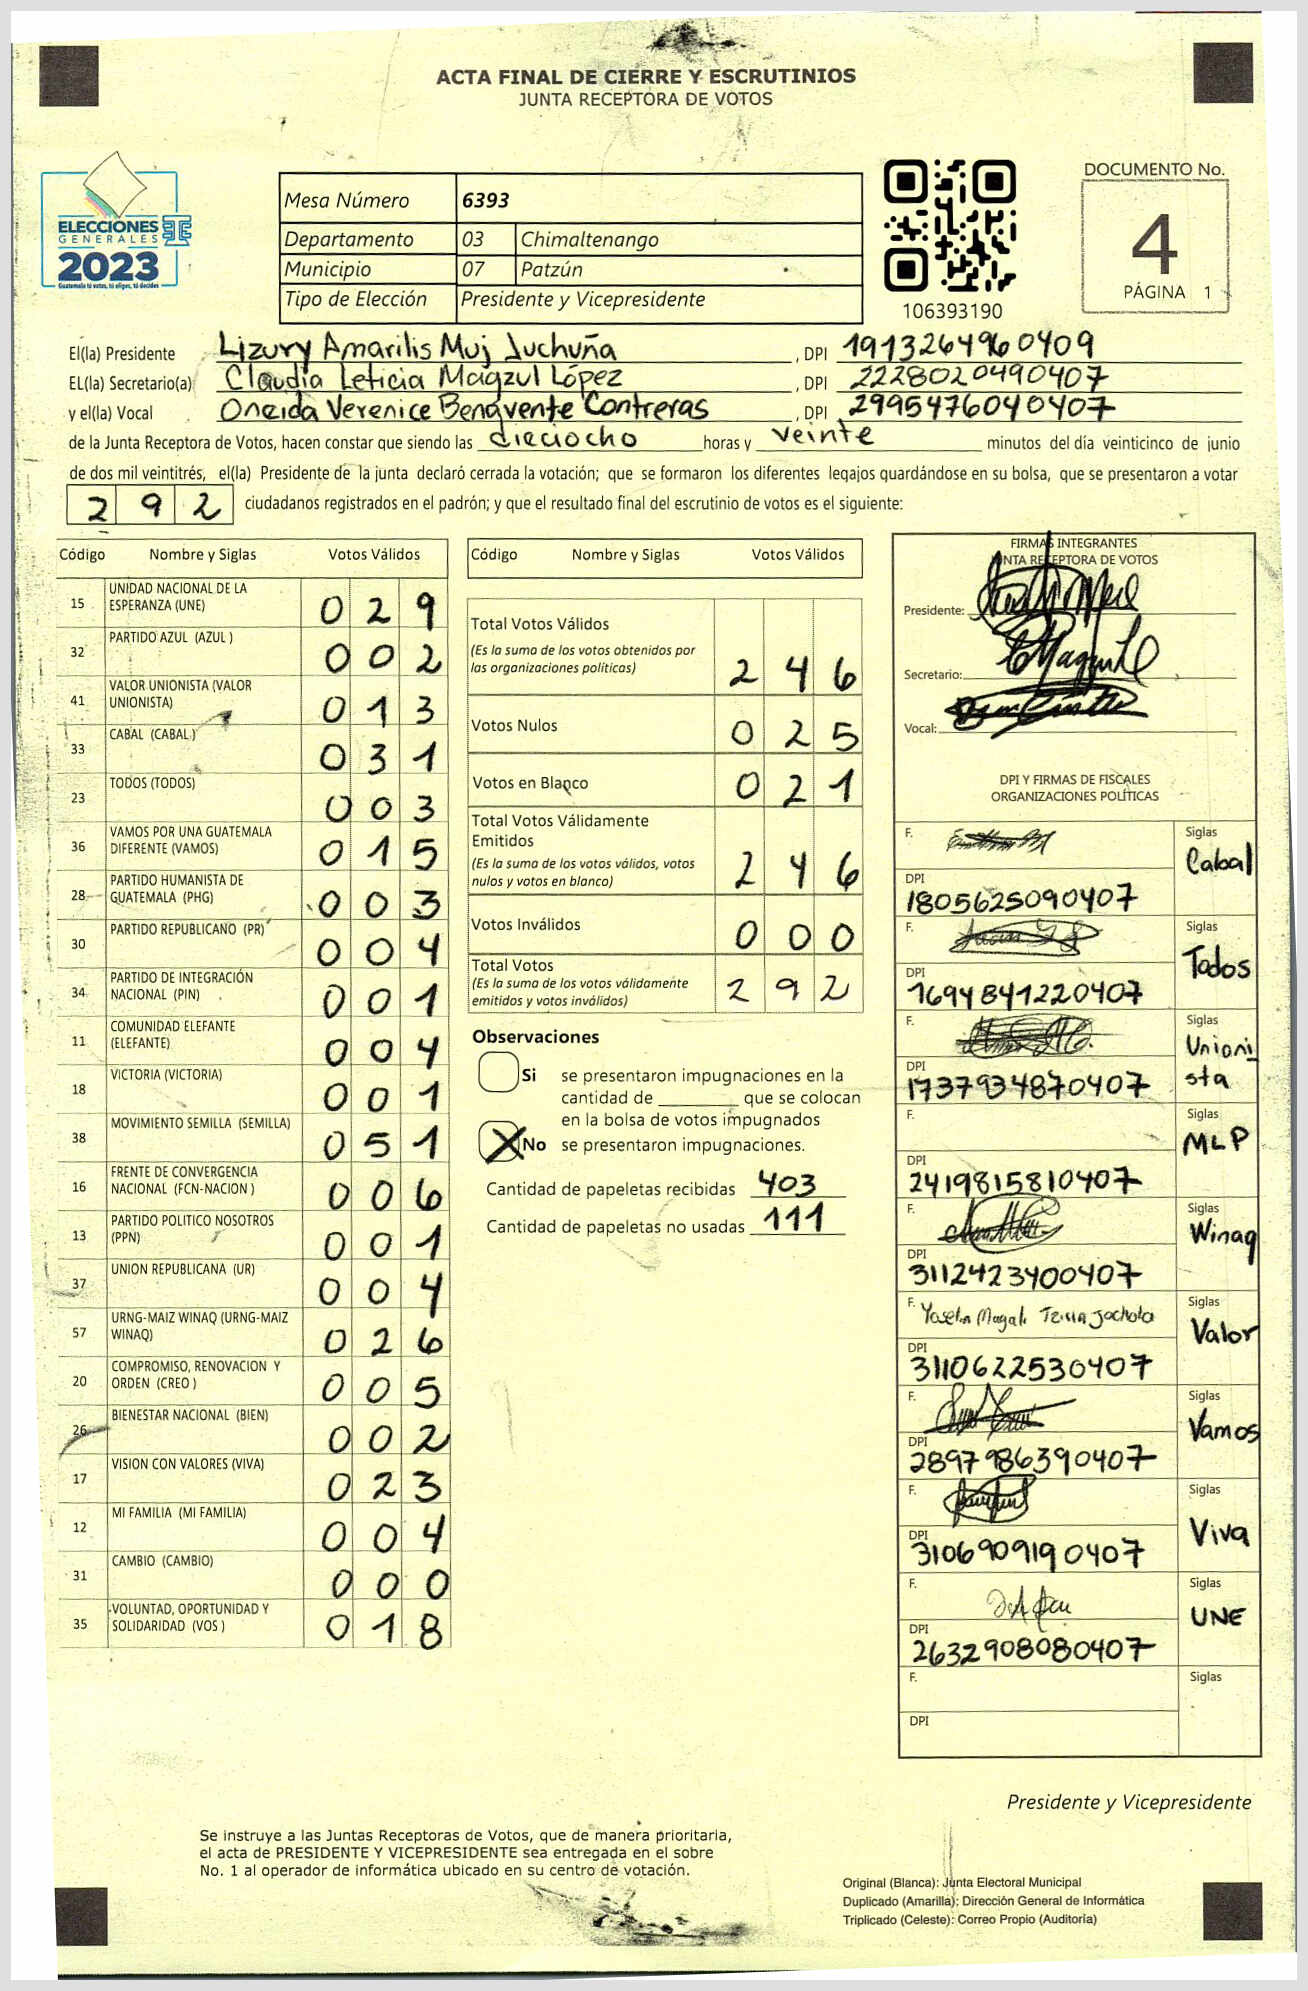 ACTA FINAL DE CIERRE Y ESCRUTINIOS
JUNTA RECEPTORA DE VOTOS
ELECCIONES
GENERALES
2023
Guatemala tú votas, tú eliges, tú decides
Mesa Número 6393
Departamento 03 Chimaltenango
Municipio 07 Patzún
Tipo de Elección Presidente y Vicepresidente
106393190
DOCUMENTO No.
4
PÁGINA 1
El(la) Presidente Lizury Amarilis Muj Juchuña, DPI 1913264960409
EL(la) Secretario(a) Claudia Leticia Magzul López, DPI 2228020490407
y el(la) Vocal Oneida Verenice Benavente Contreras, DPI 2995476040407
de la Junta Receptora de Votos, hacen constar que siendo las dieciocho horas y veinte minutos del día veinticinco de junio
de dos mil veintitrés, el(la) Presidente de la junta declaró cerrada la votación; que se formaron los diferentes legajos quardándose en su bolsa, que se presentaron a votar
292 ciudadanos registrados en el padrón; y que el resultado final del escrutinio de votos es el siguiente:
Código Nombre y Siglas Votos Válidos
15 UNIDAD NACIONAL DE LA ESPERANZA (UNE) 029
32 PARTIDO AZUL (AZUL ) 002
41 VALOR UNIONISTA (VALOR UNIONISTA) 013
33 CABAL (CABAL ) 031
23 TODOS (TODOS) 003
36 VAMOS POR UNA GUATEMALA DIFERENTE (VAMOS) 015
28 PARTIDO HUMANISTA DE GUATEMALA (PHG) 003
30 PARTIDO REPUBLICANO (PR) 004
34 PARTIDO DE INTEGRACIÓN NACIONAL (PIN) 001
11 COMUNIDAD ELEFANTE (ELEFANTE) 004
18 VICTORIA (VICTORIA) 001
38 MOVIMIENTO SEMILLA (SEMILLA) 051
16 FRENTE DE CONVERGENCIA NACIONAL (FCN-NACION ) 006
13 PARTIDO POLITICO NOSOTROS (PPN) 001
37 UNION REPUBLICANA (UR) 004
57 URNG-MAIZ WINAQ (URNG-MAIZ WINAQ) 026
20 COMPROMISO, RENOVACION Y ORDEN (CREO ) 005
26 BIENESTAR NACIONAL (BIEN) 002
17 VISION CON VALORES (VIVA) 023
12 MI FAMILIA (MI FAMILIA) 004
31 CAMBIO (CAMBIO) 000
35 VOLUNTAD, OPORTUNIDAD Y SOLIDARIDAD (VOS ) 018
Código Nombre y Siglas Votos Válidos
Total Votos Válidos
(Es la suma de los votos obtenidos por
las organizaciones políticas) 246
Votos Nulos 025
Votos en Blanco 021
Total Votos Válidamente
Emitidos
(Es la suma de los votos válidos, votos
nulos y votos en blanco) 246
Votos Inválidos 000
Total Votos
(Es la suma de los votos válidamente
emitidos y votos inválidos) 292
Observaciones
Si se presentaron impugnaciones en la
cantidad de ________ que se colocan
en la bolsa de votos impugnados
X No se presentaron impugnaciones.
Cantidad de papeletas recibidas 403
Cantidad de papeletas no usadas 111
FIRMAS INTEGRANTES
JUNTA RECEPTORA DE VOTOS
Presidente:
Secretario:
Vocal:
DPI Y FIRMAS DE FISCALES
ORGANIZACIONES POLÍTICAS
F. Siglas Cabal
DPI 1805625090407
F. Siglas Todos
DPI 1694841220407
F. Siglas Unionista
DPI 1737934870407
F. Siglas MLP
DPI 2419815810407
F. Siglas Winaq
DPI 3112423400407
F. Siglas Valor
DPI 3110622530407
F. Siglas Vamos
DPI 2897986390407
F. Siglas Viva
DPI 3106909190407
F. Siglas UNE
DPI 2632908080407
F. Siglas
DPI
Presidente y Vicepresidente
Se instruye a las Juntas Receptoras de Votos, que de manera prioritaria,
el acta de PRESIDENTE Y VICEPRESIDENTE sea entregada en el sobre
No. 1 al operador de informática ubicado en su centro de votación.
Original (Blanca): Junta Electoral Municipal
Duplicado (Amarilla): Dirección General de Informática
Triplicado (Celeste): Correo Propio (Auditoría)